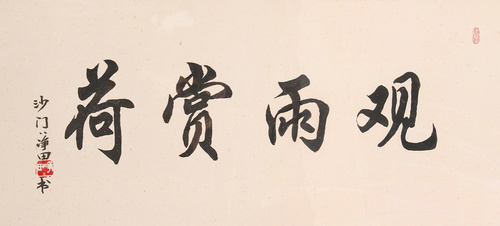 观雨赏荷
沙门净田书